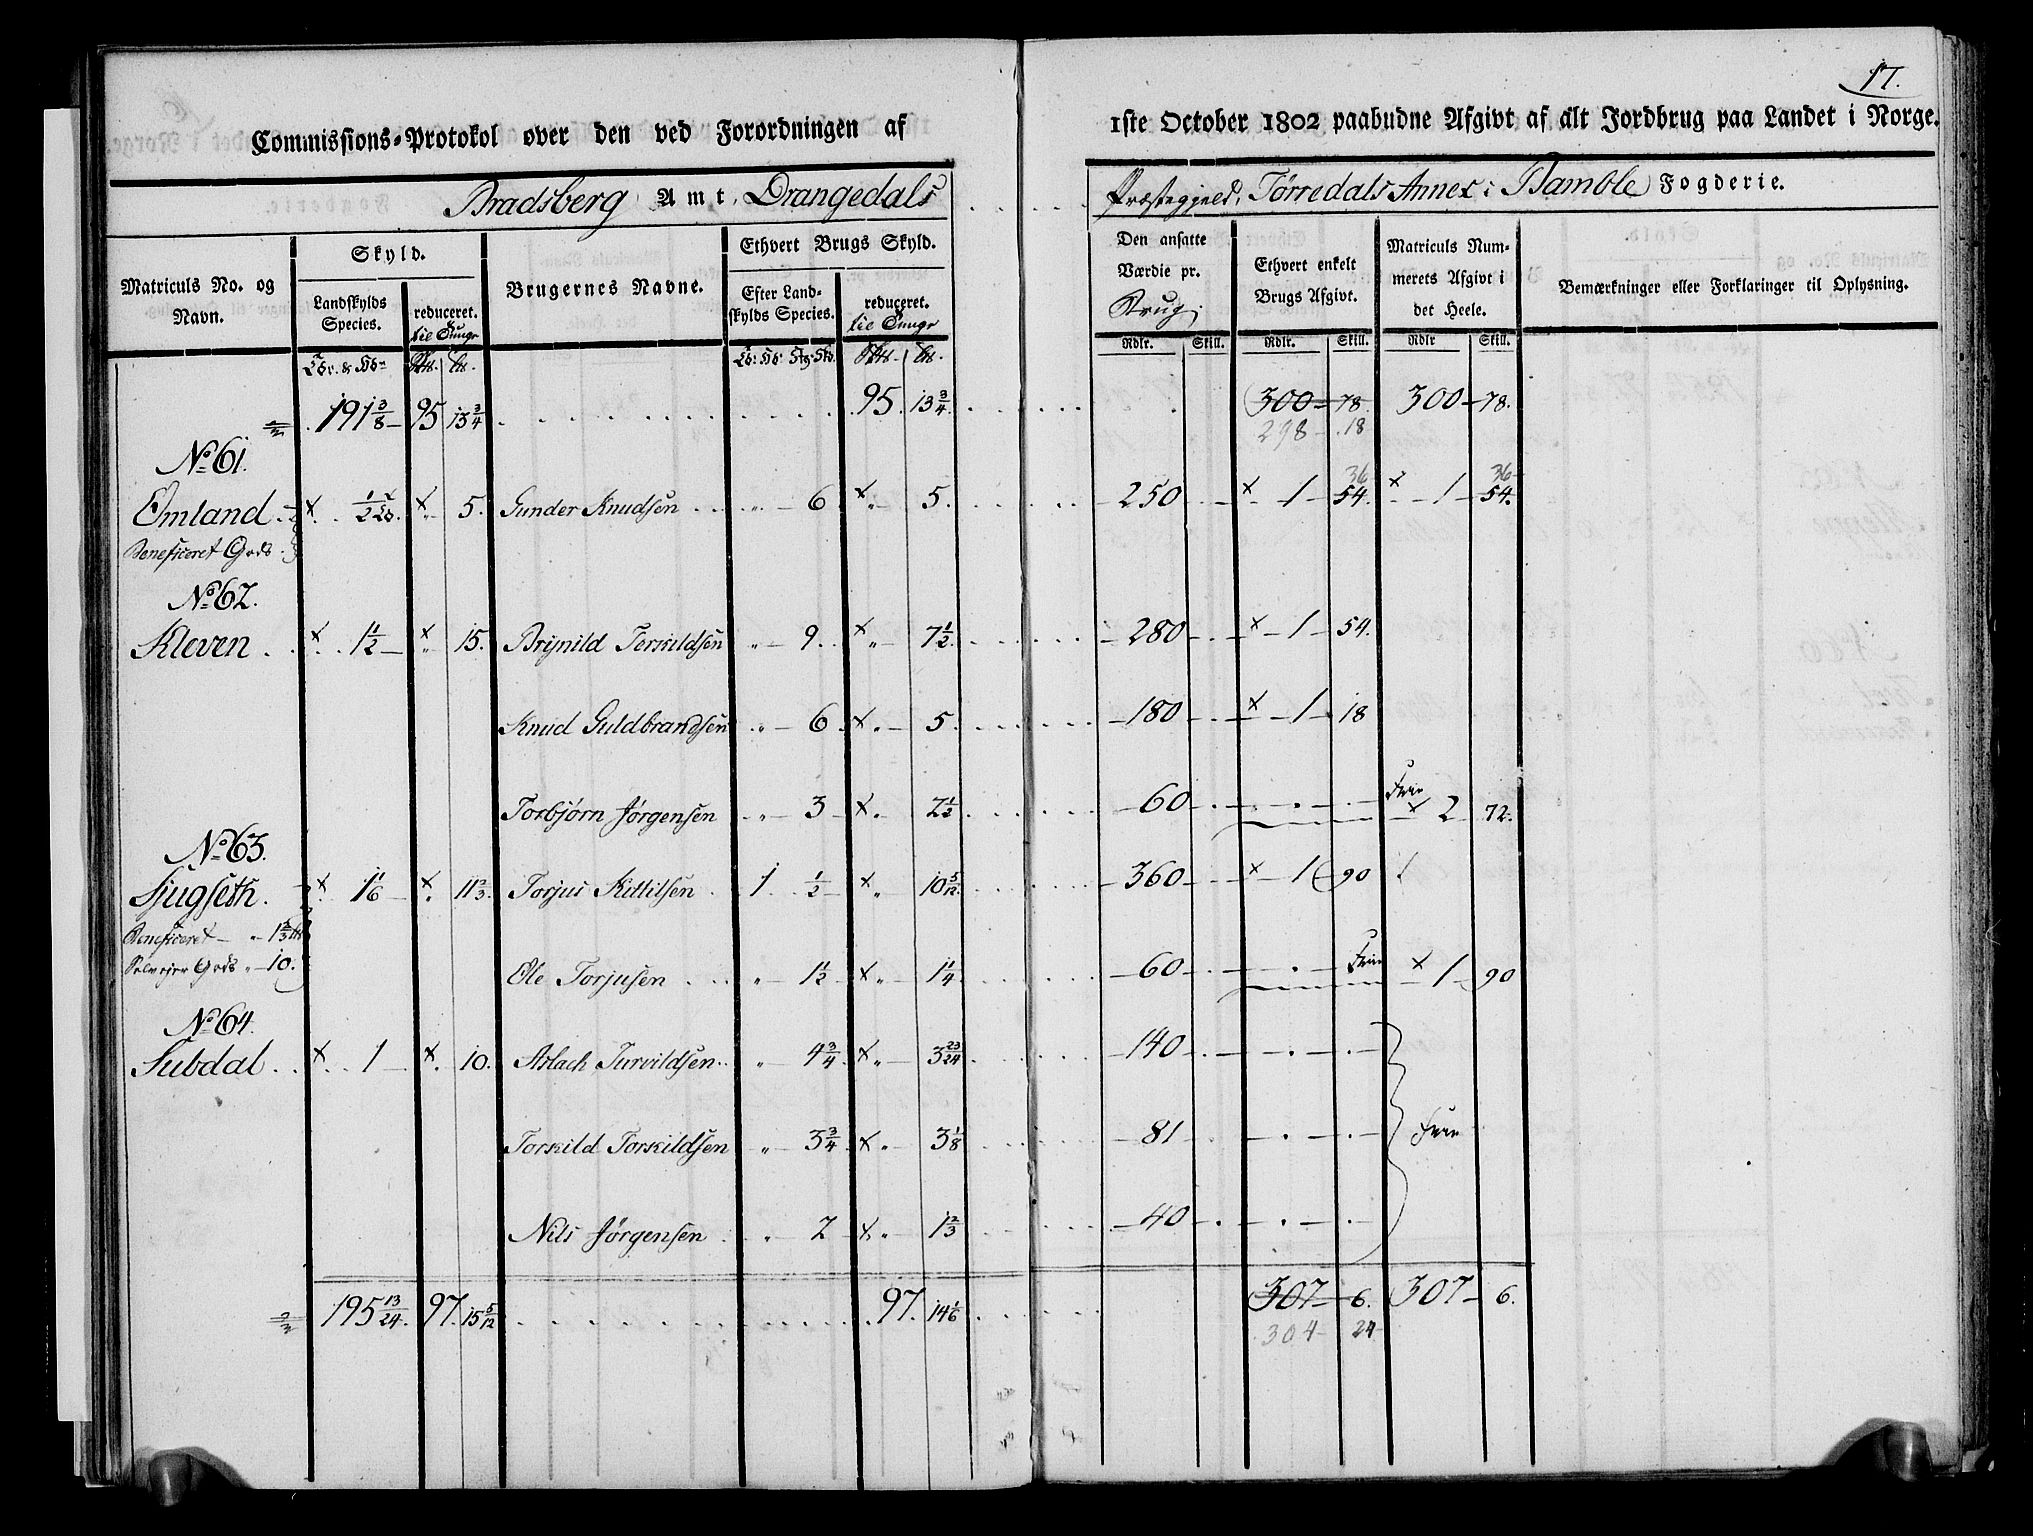 17.
Commissions-Protokol over den ved Forordningen af 1ste October 1802 paabudne Afgivt af alt Jordbrug paa Landet i Norge.
Bradsberg Amt, Drangedals Præstegjeld, Tørredals Annex i Bamble Fogderie.
Matriculs No. og Navn. Skyld. Brugernes Navne. Ethvert Brugs Skyld. Den ansatte Værdie pr. Brug Ethvert enkelt Brugs Afgivt. Matriculs Nummerets Afgivt i det Heele. Bemærkninger eller Forklaringer til Oplysning.
Landskylds Species. reduceret. til Tunge Efter Landskylds Species. reduceret. til Tunge
Rdlr. Skill. Rdlr. Skill. Rdlr Skill.
191 3/8 95 13 3/4 95. 13 3/4. 300 78. 300 78.
298 18
No 61.
Omland 1/2 5. Gunder Knudsen 6 5. 250 1 54. 36 1 54. 36
Beneficeret Gods
No 62.
Kleven 1 1/2 15. Brynild Terkildsen 9 7 1/2. 280 1 54.
Knud Guldbrandsen 6 5. 180 1 18
Torbjørn Jørgensen 3 2 1/2 60 Frie 2 72.
No 63.
Sjugseth. 1 1/6 11 2/3. Torjus Kittilsen 1 1/2 10 5/12. 360 1 90
Beneficeret 1 2/3
Selvejer Gods 10.
Ole Torjusen 1 1/2 1 1/4. 60 Frie 1 90
No 64.
Subdal 1 10. Aslach Turvildsen 4 3/4 3 23/24 140
Torkild Torkildsen 3 3/4 3 1/8 81 Frie
Nils Jørgensen 2 1 2/3 40
195 13/24. 97. 15 5/12 97. 14 1/6 307 6. 307 6.
304 24